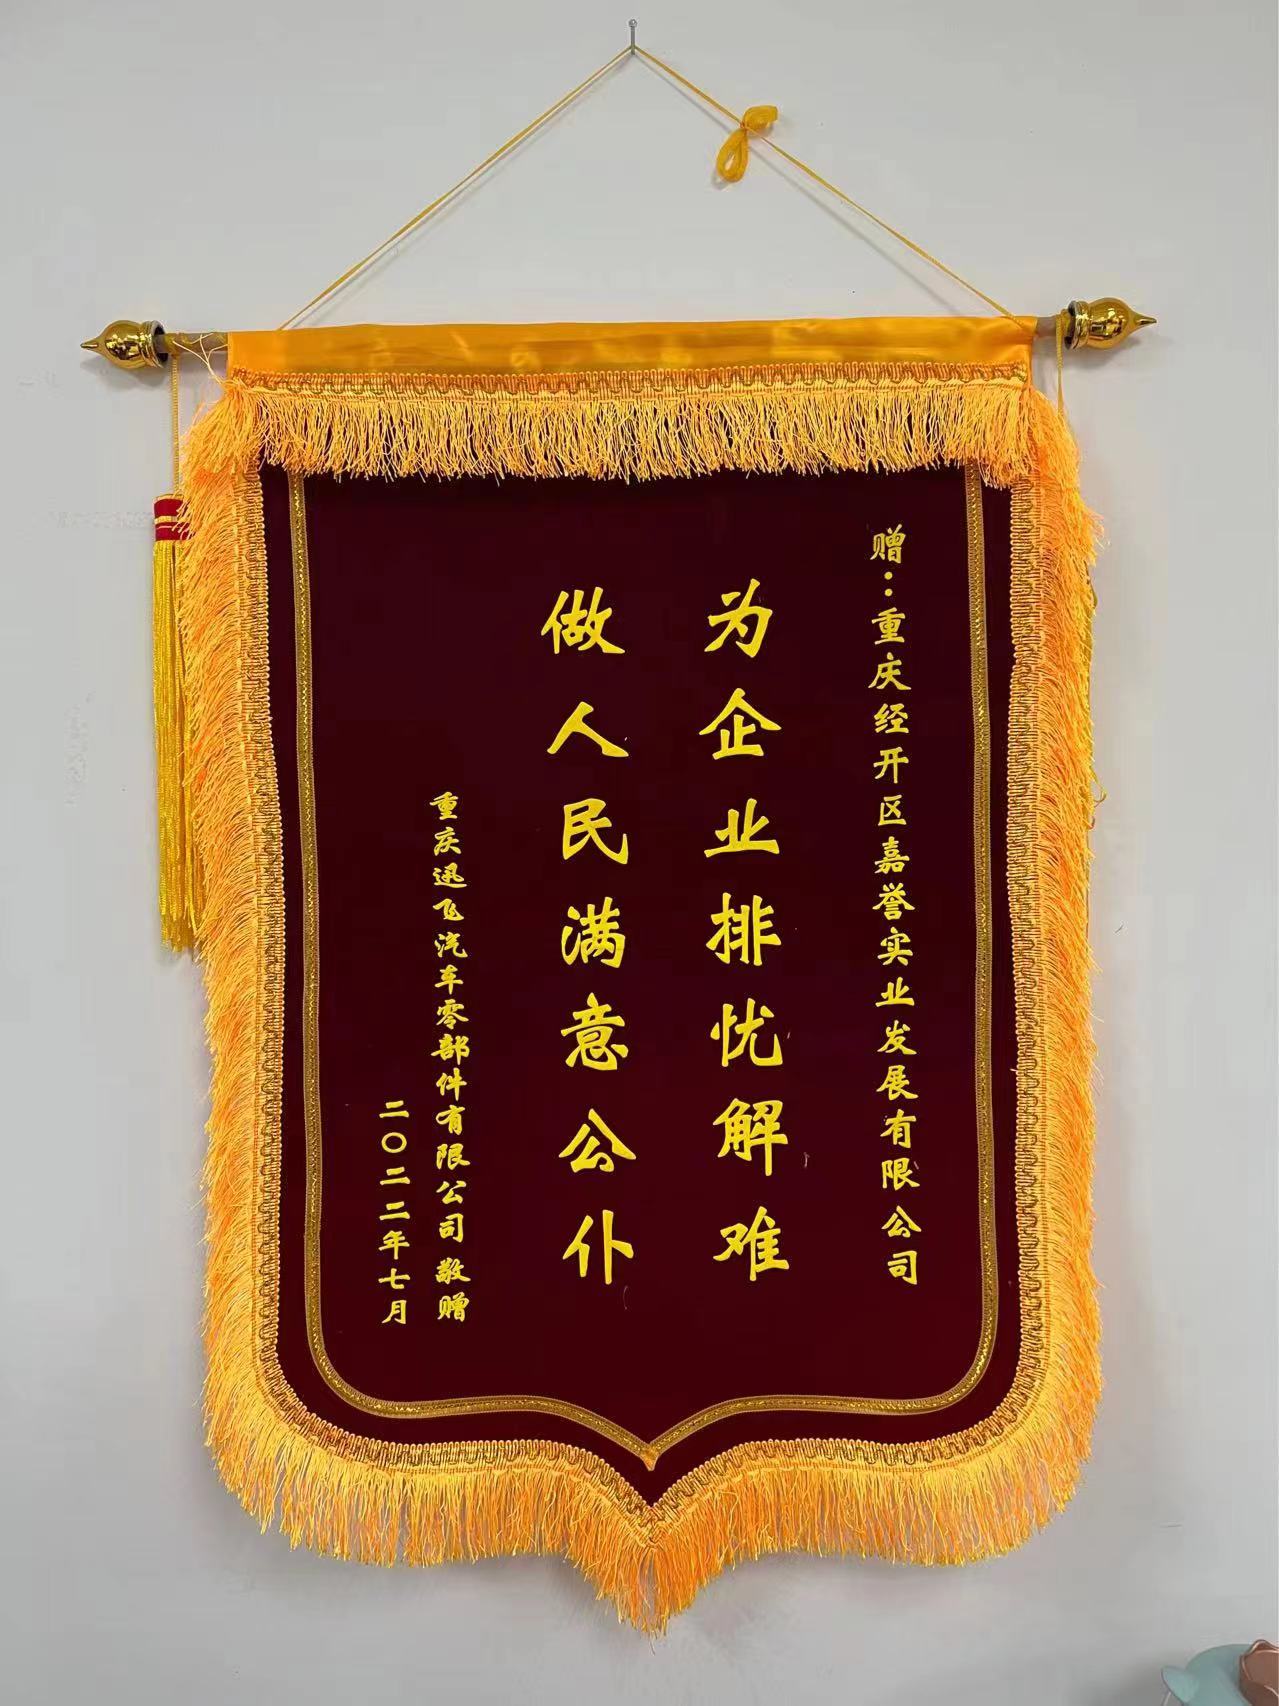 赠：重庆经开区嘉誉实业发展有限公司
为企业排忧解难
做人民满意公仆
重庆迅飞汽车零部件有限公司 敬赠
二〇二二年七月